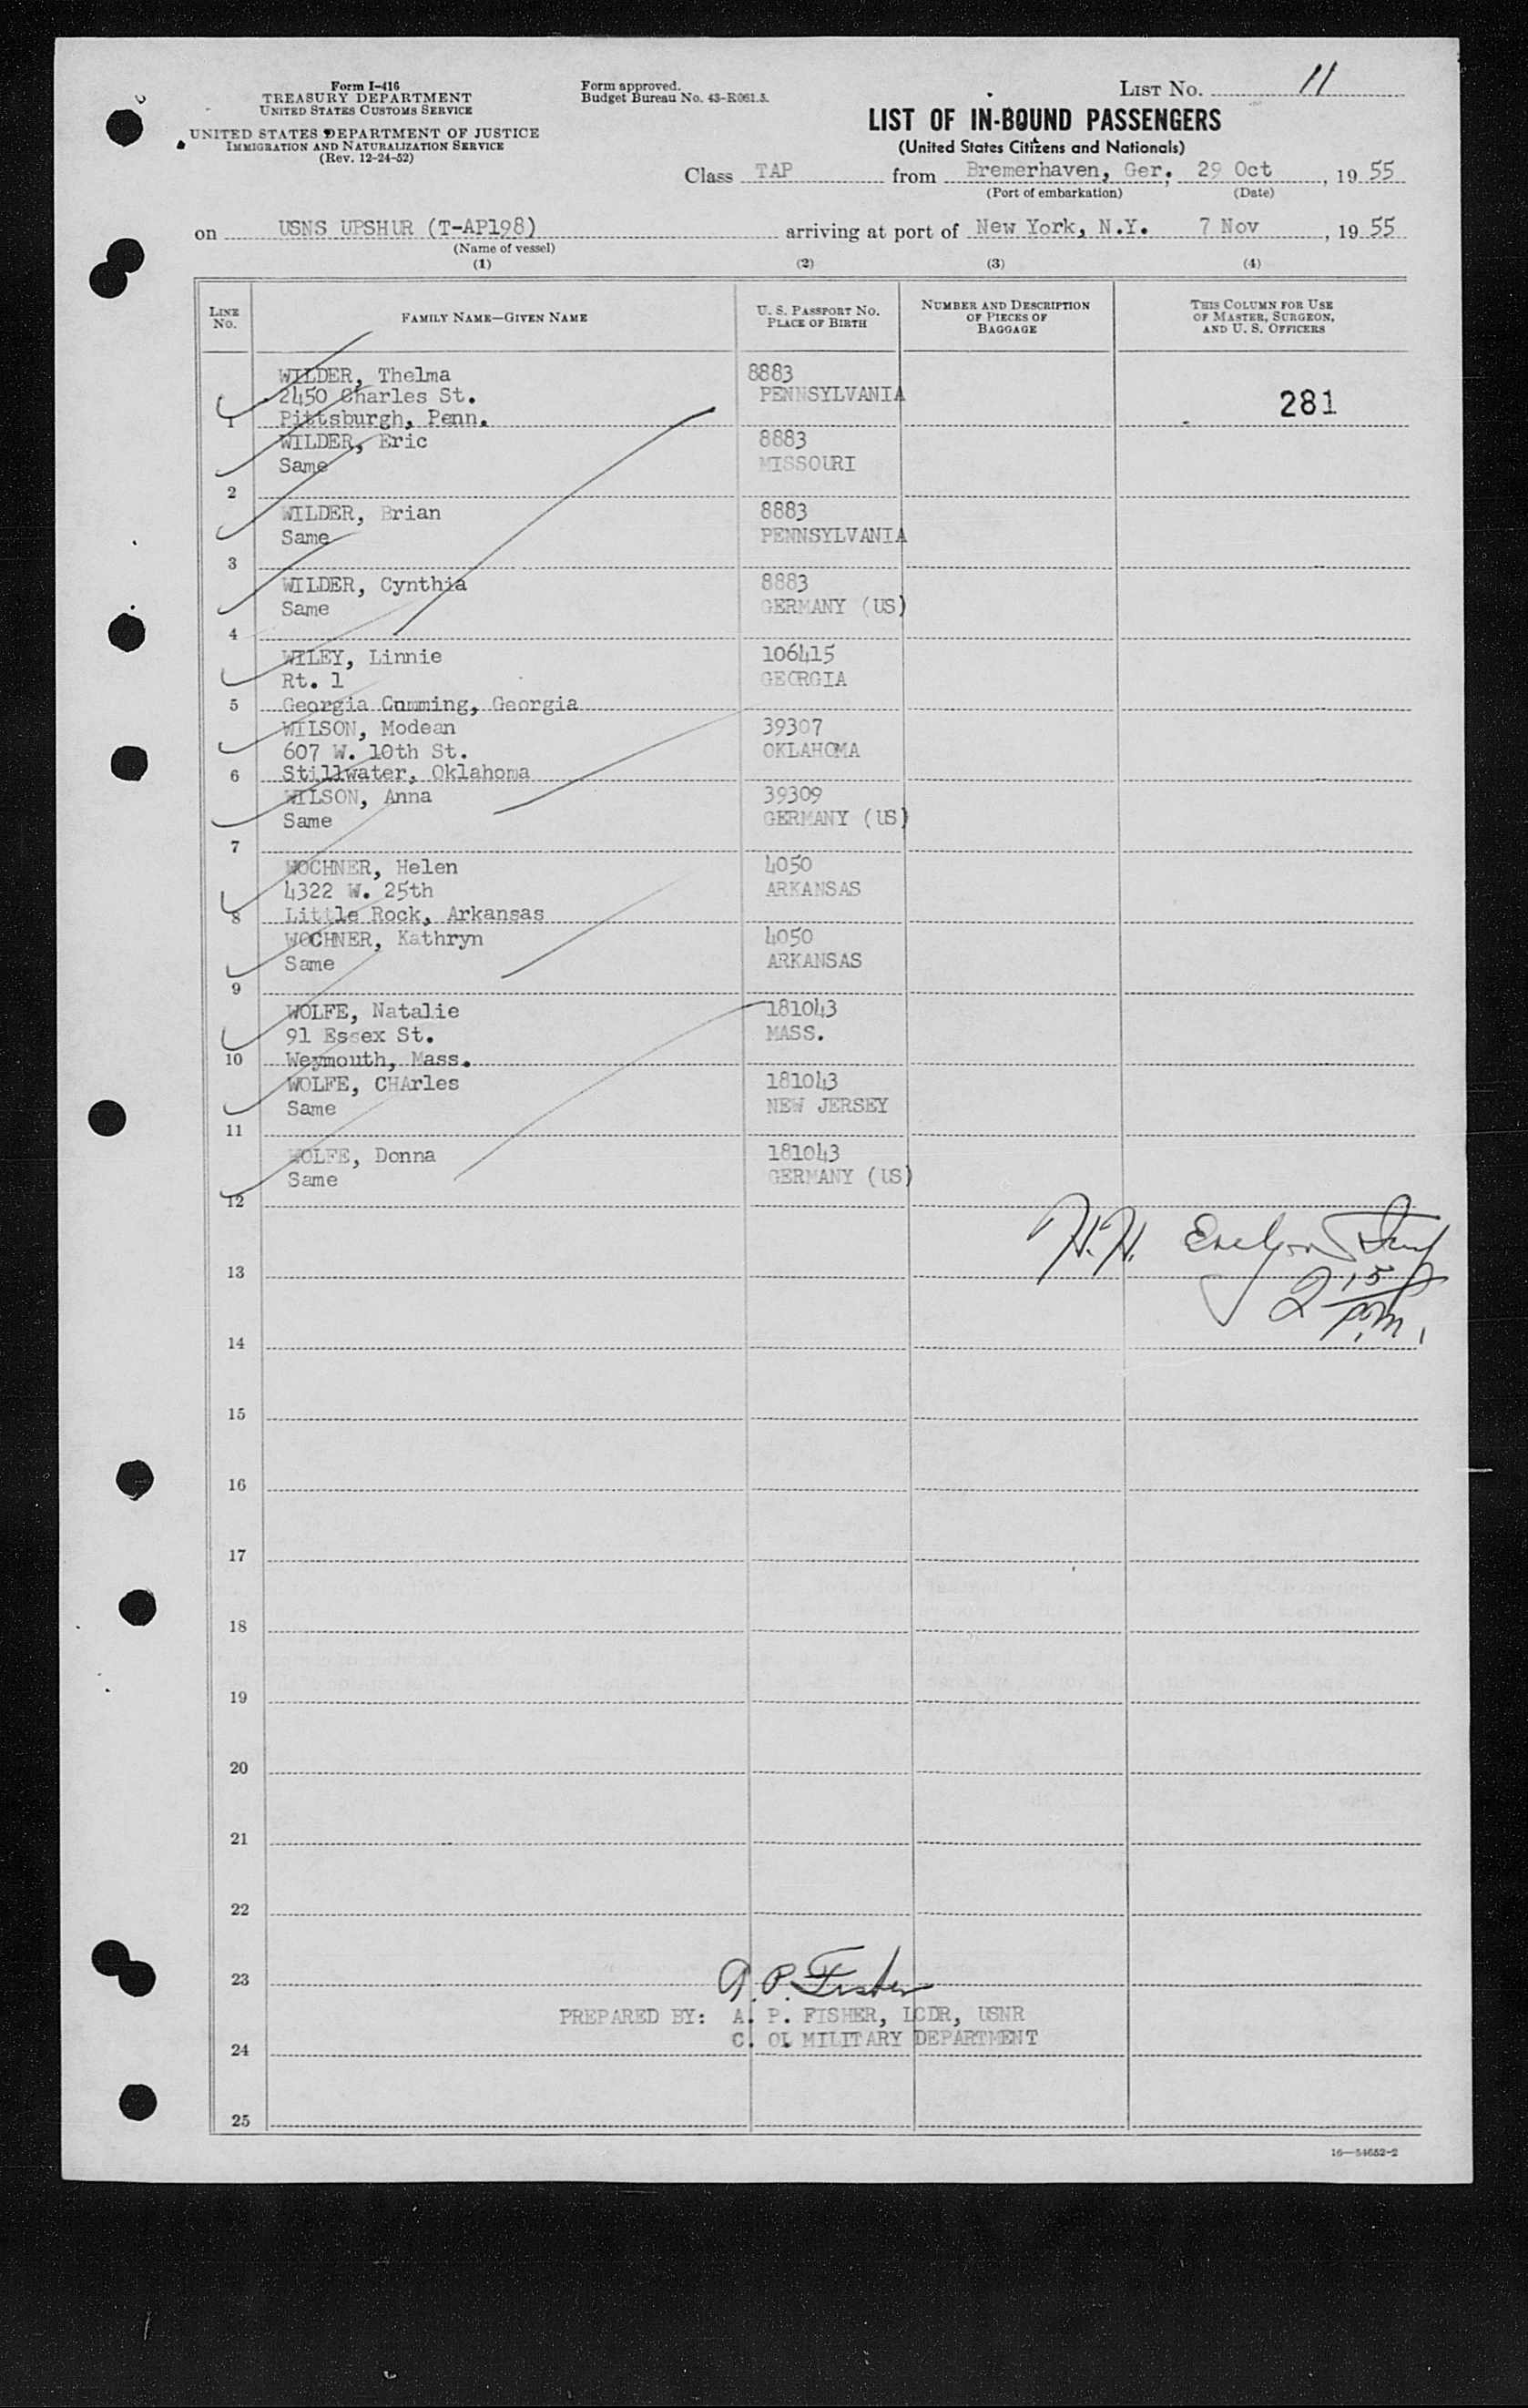 Form I-416
TREASURY DEPARTMENT
UNITED STATES CUSTOMS SERVICE
UNITED STATES DEPARTMENT OF JUSTICE
IMMIGRATION AND NATURALIZATION SERVICE
(Rev. 12-24-52)
Form approved.
Budget Bureau No. 43-R061.5.
LIST No. 11
LIST OF IN-BOUND PASSENGERS
(United States Citizens and Nationals)
Class TAP from Bremerhaven, Ger. 29 Oct, 1955
(Port of embarkation) (Date)
on USNS UPSHUR (T-AP198) arriving at port of New York, N.Y. 7 Nov, 1955
(Name of vessel)
(1) (2) (3) (4)
LINE No. FAMILY NAME—GIVEN NAME U. S. PASSPORT No. PLACE OF BIRTH NUMBER AND DESCRIPTION OF PIECES OF BAGGAGE THIS COLUMN FOR USE OF MASTER, SURGEON, AND U. S. OFFICERS
WILDER, Thelma 8883
2450 Charles St. PENNSYLVANIA 281
1 Pittsburgh, Penn.
WILDER, Eric 8883
Same MISSOURI
2
WILDER, Brian 8883
Same PENNSYLVANIA
3
WILDER, Cynthia 8883
Same GERMANY (US)
4
WILEY, Linnie 106415
Rt. 1 GEORGIA
5 Georgia Cumming, Georgia
WILSON, Modean 39307
607 W. 10th St. OKLAHOMA
6 Stillwater, Oklahoma
WILSON, Anna 39309
Same GERMANY (US)
7
WOCHNER, Helen 4050
4322 W. 25th ARKANSAS
8 Little Rock, Arkansas
WOCHNER, Kathryn 4050
Same ARKANSAS
9
WOLFE, Natalie 181043
91 Essex St. MASS.
10 Weymouth, Mass.
WOLFE, CHArles 181043
Same NEW JERSEY
11
WOLFE, Donna 181043
Same GERMANY (US)
12
H.H. Evelyn
13
2 15
P.M.
14
15
16
17
18
19
20
21
22
23 A. P. Fisher
PREPARED BY: A. P. FISHER, LCDR, USNR
C. O. MILITARY DEPARTMENT
24
25
16—54652-2